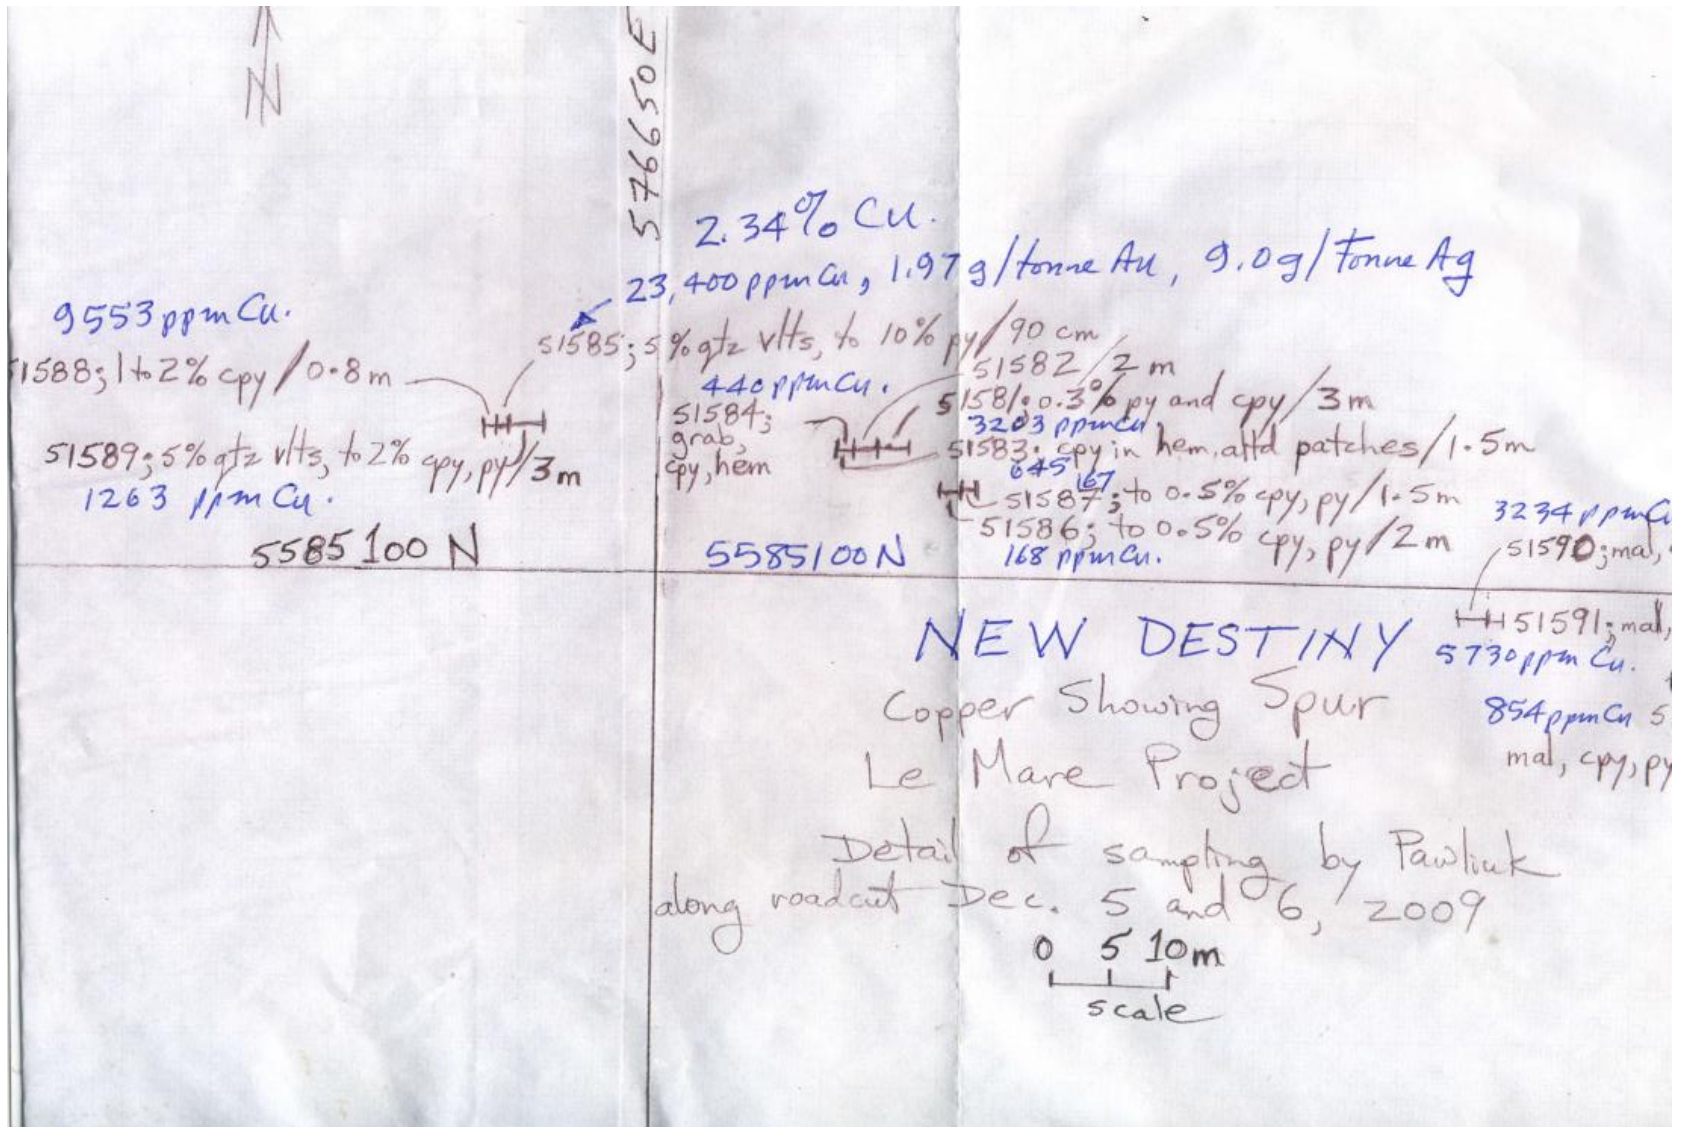 N
576650E
2.34% Cu.
23,400 ppm Cu, 1.97 g/tonne Au, 9.0g/Tonne Ag
9553 ppm Cu.
51585; 5% qtz vlts, to 10% py/90 cm
51588; 1 to 2% cpy / 0.8 m
51582/2 m
440 ppm Cu.
51581; 0.3% py and cpy/3 m
51584;
grab,
cpy, hem
3203 ppm Cu
51583; cpy in hem. altd patches/1.5m
51589; 5% qtz vlts, to 2% cpy, py/3 m
1263 ppm Cu.
645
167
51587; to 0.5% cpy, py/1.5m
51586; to 0.5% cpy, py/2 m
168 ppm Cu.
3234 ppm C
51590; mal,
5585100 N
5585100N
51591; mal,
5730 ppm Cu.
854 ppm Cu 5
mal, cpy, py
NEW DESTINY
Copper Showing Spur
Le Mare Project
Detail of sampling by Pawliuk
along roadcut Dec. 5 and 6, 2009
0 5 10m
scale